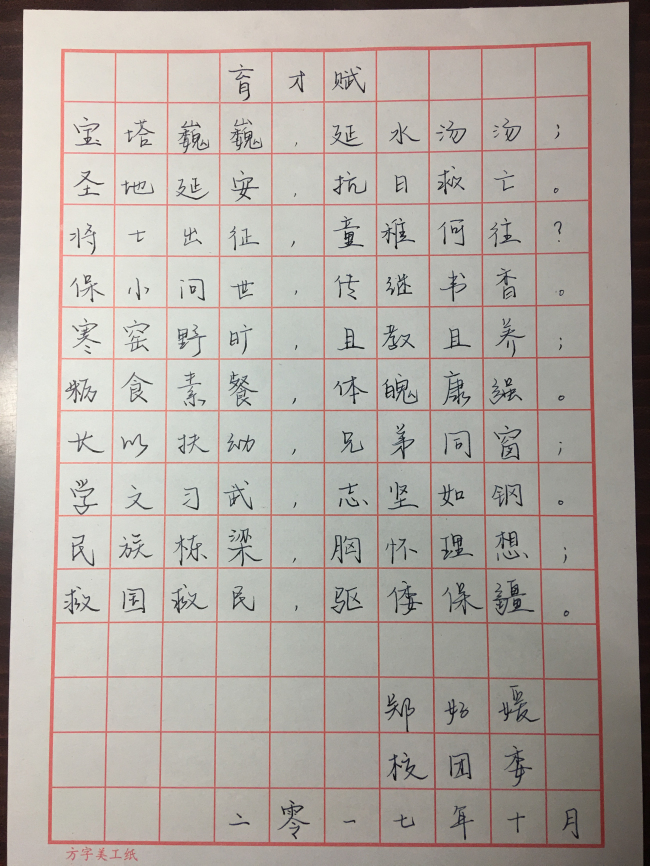 育才赋
宝塔巍巍，延水汤汤；
圣地延安，抗日救亡。
将士出征，童稚何往？
保小问世，传继书香。
寒窑野旷，且教且养；
粝食素餐，体魄康强。
长以扶幼，兄弟同窗；
学文习武，志坚如钢。
民族栋梁，胸怀理想；
救国救民，驱倭保疆。
郑好媛
核团委
二零一七年十月
方字美工纸